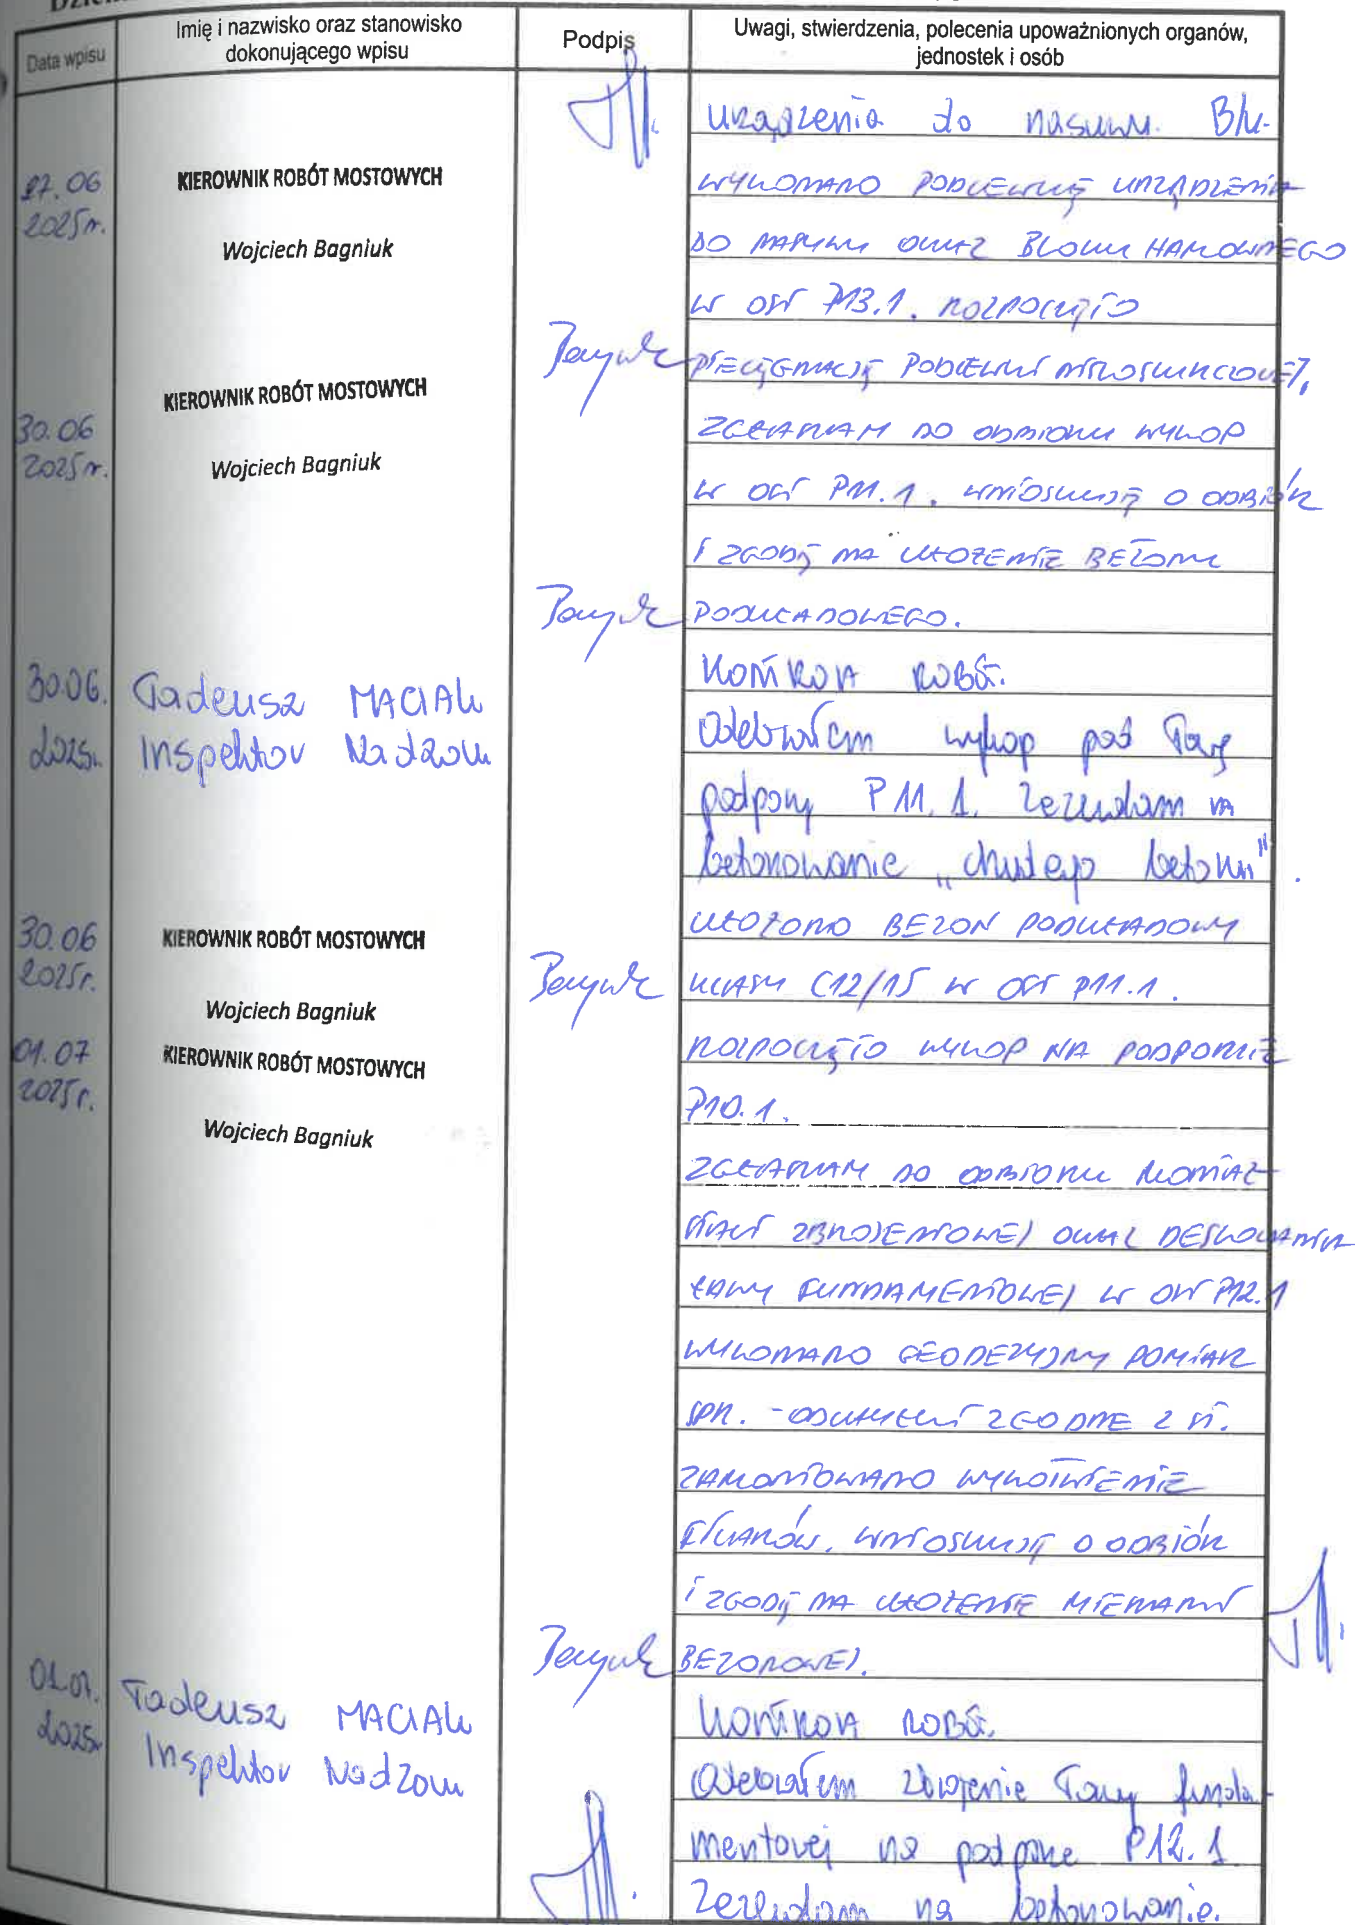 Data wpisu
Imię i nazwisko oraz stanowisko
dokonującego wpisu
Podpis
Uwagi, stwierdzenia, polecenia upoważnionych organów,
jednostek i osób
urządzenia do nasuwu. B/u.
27.06
2025r.
KIEROWNIK ROBÓT MOSTOWYCH
Wojciech Bagniuk
WYKONANO PODLEWKĘ URZĄDZENIA
DO NASUWU ORAZ BLOKU HAMOWNEGO
W OSI P13.1. ROZPOCZĘTO
PIELĘGNACJĘ PODLEWKI NISKOSKURCZOWEJ.
30.06
2025r.
KIEROWNIK ROBÓT MOSTOWYCH
Wojciech Bagniuk
ZGŁASZAM DO ODBIORU WYKOP
W OSI P11.1. WNIOSKUJĘ O ODBIÓR
I ZGODĘ NA UŁOŻENIE BETONU
PODKŁADOWEGO.
30.06.
2025r.
Tadeusz MACIAK
Inspektor Nadzoru
Kontrola robót.
Odebrałem wykop pod ławę
podpory P11.1. Zezwalam na
betonowanie „chudego betonu".
30.06
2025r.
KIEROWNIK ROBÓT MOSTOWYCH
Wojciech Bagniuk
UŁOŻONO BETON PODKŁADOWY
KLASY C12/15 W OSI P11.1.
01.07
2025r.
KIEROWNIK ROBÓT MOSTOWYCH
Wojciech Bagniuk
ROZPOCZĘTO WYKOP NA PODPORZE
P10.1.
ZGŁASZAM DO ODBIORU MONTAŻ
STALI ZBROJENIOWEJ ORAZ DESKOWANIA
ŁAWY FUNDAMENTOWEJ W OSI P12.1
WYKONANO GEODEZYJNY POMIAR
SPR. - ODCHYŁKI ZGODNE Z
ZAMONTOWANO WYKOTWIENIE
FILARÓW. WNIOSKUJĘ O ODBIÓR
I ZGODĘ NA UŁOŻENIE MIESZANKI
BETONOWEJ.
01.07.
2025r
Tadeusz MACIAK
Inspektor Nadzoru
Kontrola robót.
Odebrałem zbrojenie ławy funda-
mentowej na podporze P12.1
Zezwalam na betonowanie.